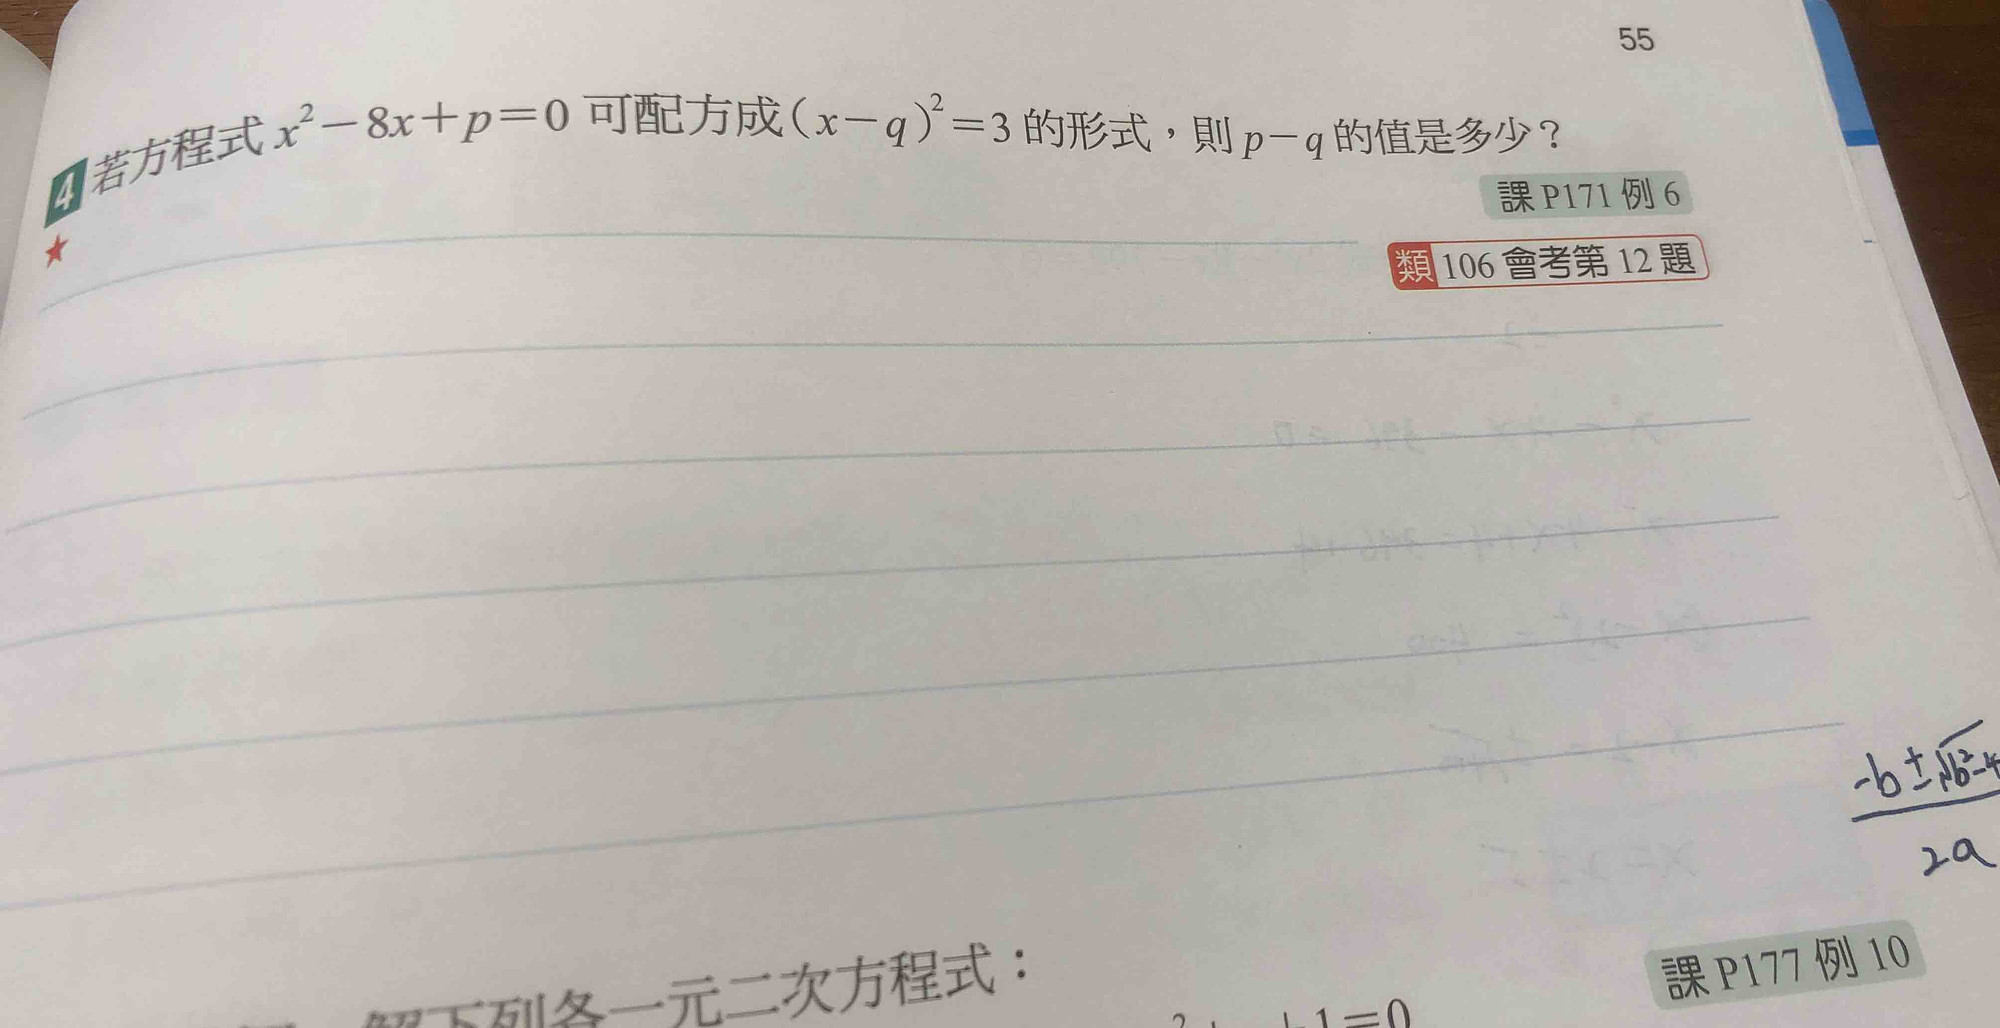 55
4 若方程式 x²－8x＋p＝0 可配方成(x－q)²＝3 的形式，則 p－q 的值是多少？
★
課 P171 例 6
類 106 會考第 12 題
-b±√b²-4
2a
課 P177 例 10
解下列各一元二次方程式：
+1＝0